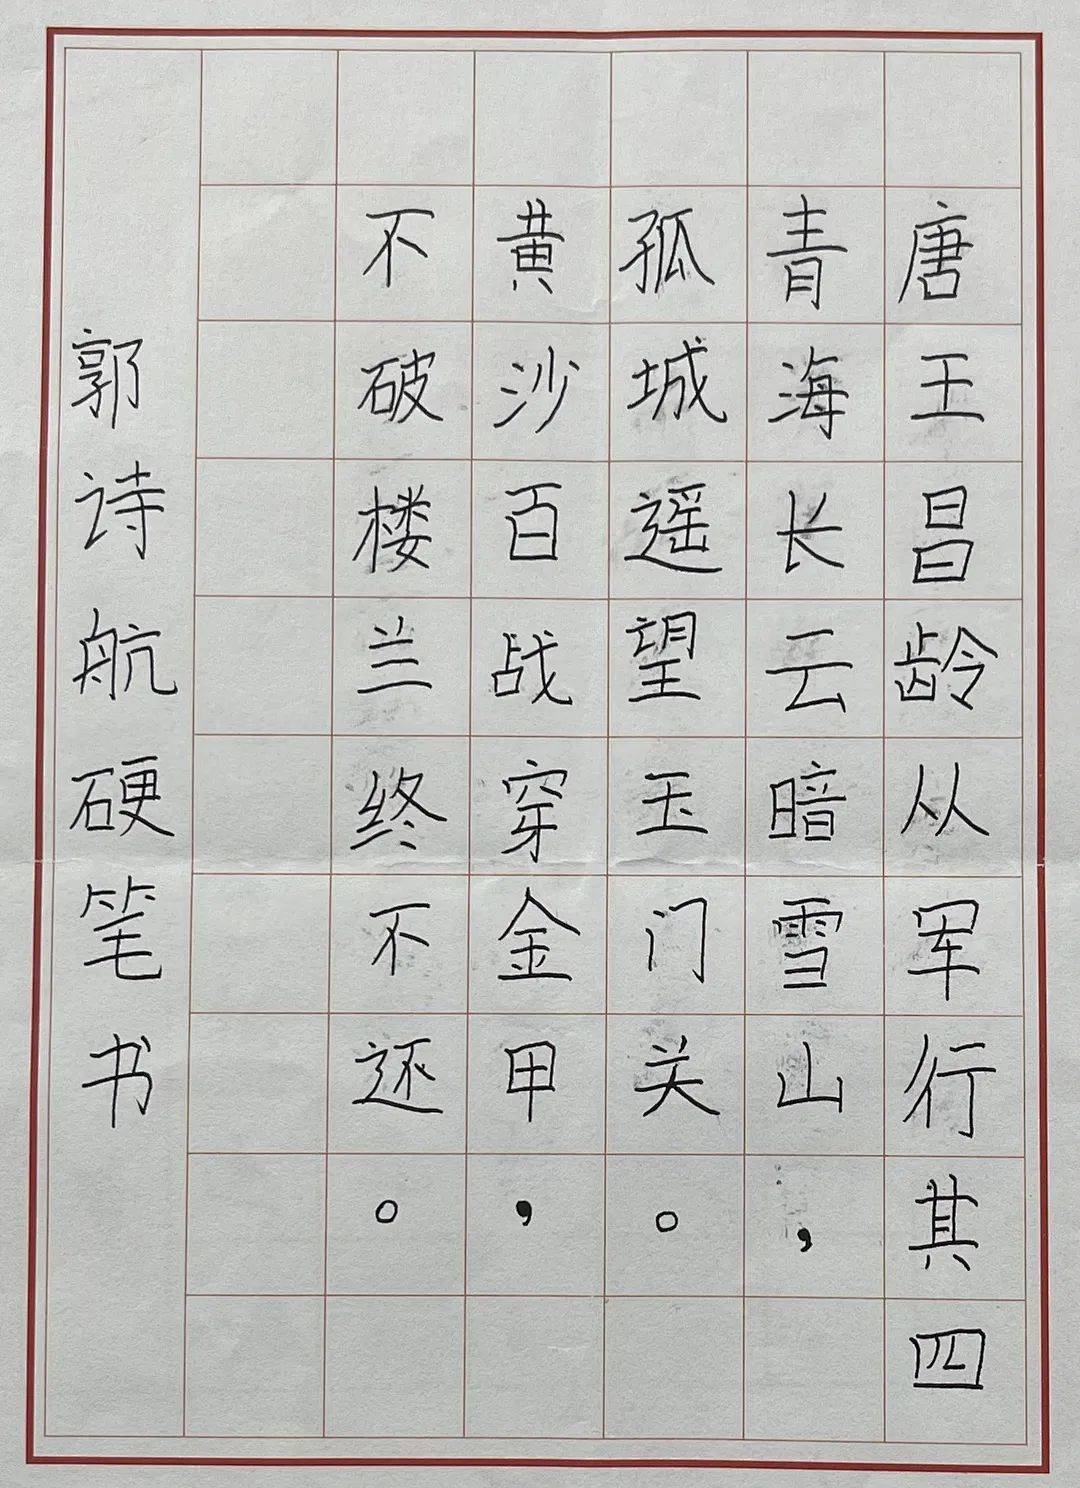 唐王昌龄从军行其四
青海长云暗雪山，
孤城遥望玉门关。
黄沙百战穿金甲，
不破楼兰终不还。
郭诗航硬笔书